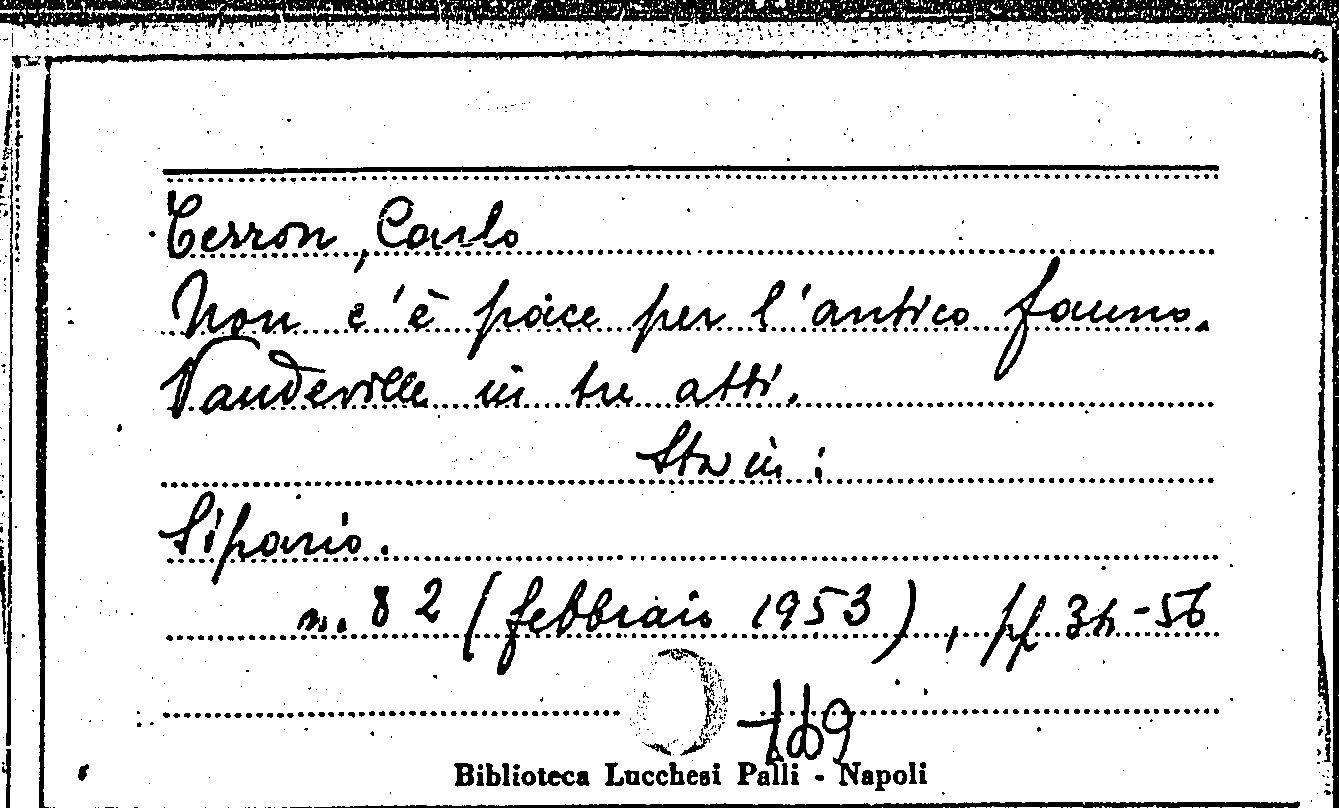 Terron, Carlo
Non c'è pace per l'antico fauno.
Vaudeville in tre atti.
Sta in:
Sipario.
n. 82 (febbraio 1953), pp
Biblioteca Lucchesi Palli - Napoli